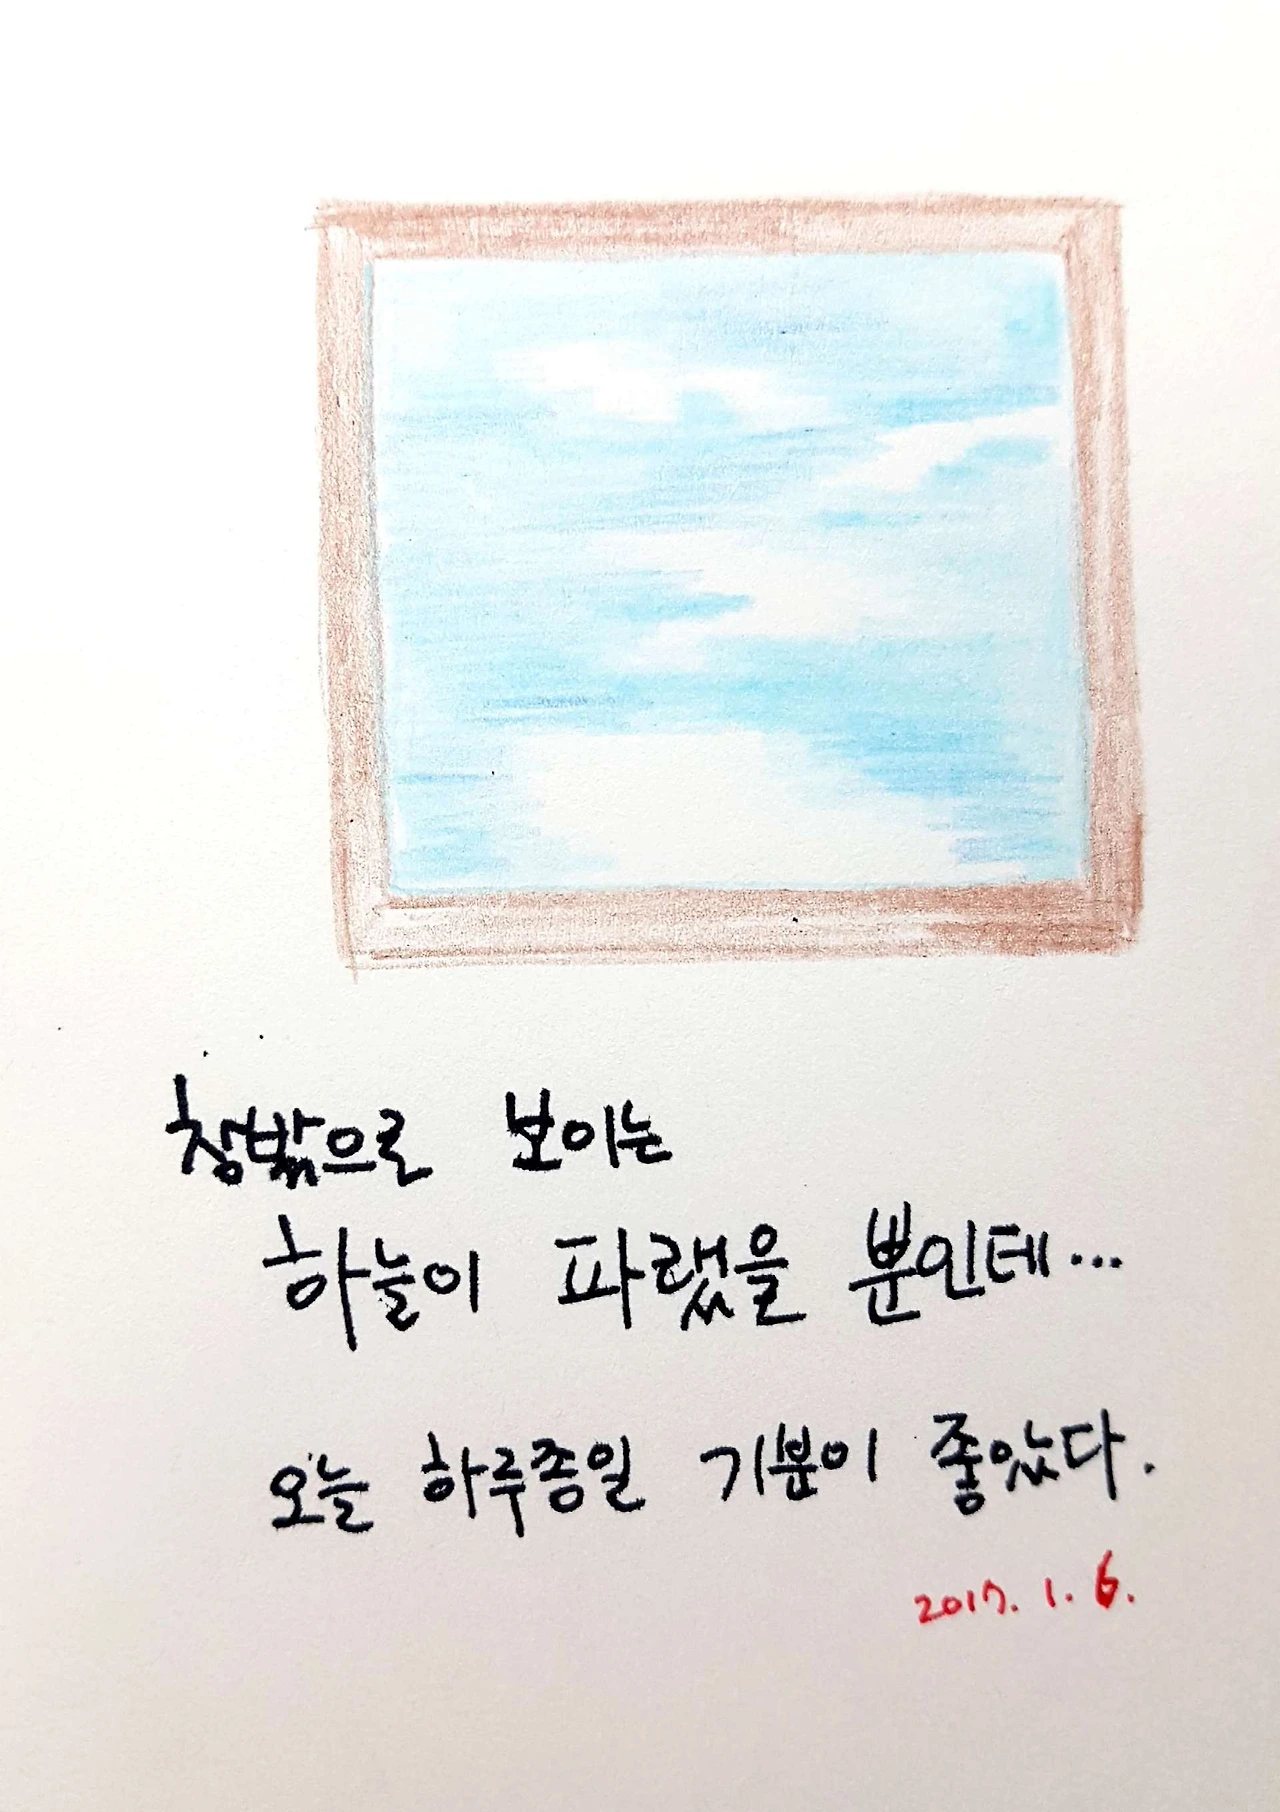 창밖으로 보이는
하늘이 파랬을 뿐인데...
오늘 하루종일 기분이 좋았다.
2017. 1. 6.